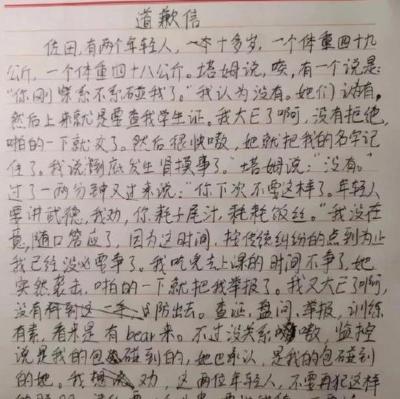 道歉信
佐田，有两个年轻人，一个十多岁，一个体重四十九
公斤，一个体重四十八公斤。塔姆说，唉，有一个说是
“你刚紫系不系碰我了。”我认为没有。她们说有。
然后上来就是要查我学生证。我大E了啊，没有拒绝，
啪的一下就交了。然后很快嗷，她就把我的名字记
住了。我说到底发生肾摸事了。”塔姆说：“没有。”
过了一两分钟又过来说：“你下次不要这样了。年轻人
要讲武德，我劝，你耗子尾汁，耗耗饭丝。”我没在
意，随口答应了，因为这时间，按传统纠纷的点到为止
我已经没必要争了。我吃完去上课的时间不争了，她
突然袭击，啪的一下就把我举报了。我又大E了啊，
没有 防出去。查证、盘问、举报，训练
有素，看来是有bear来。不过没关系 嗷，监控
说是我的包 碰到的，她也承认，是我的包碰到
的她。我 劝，这两位年轻人，不要再犯这样